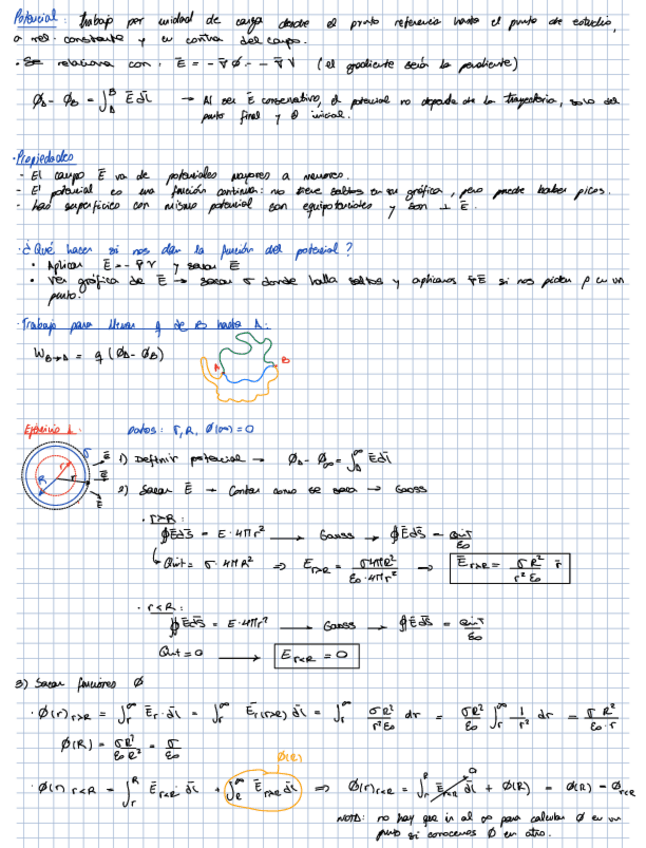 Potencial: Trabajo por unidad de carga desde el punto referencia hasta el punto de estudio,
a vel. constante y en contra del campo.
· Se relaciona con: Ē = -∇̄Φ = -∇̄V (el gradiente sería la pendiente)
Φ_A - Φ_B = ∫_A^B Ē dl̄ → Al ser Ē conservativo, el potencial no depende de la trayectoria, solo del
punto final y el inicial.
· Propiedades
- El campo Ē va de potenciales mayores a menores.
- El potencial es una función continua: no tiene saltos en su gráfica, pero puede haber picos.
- Las superficies con mismo potencial son equipotenciales y son ⊥ Ē.
· ¿Qué hacer si nos dan la función del potencial?
· Aplicar Ē = -∇̄V y sacar Ē
· Ver gráfica de Ē → sacar σ donde halla saltos y aplicamos ∇̄Ē si nos piden ρ en un
punto.
· Trabajo para llevar q de B hasta A:
W_B→A = q (Φ_A - Φ_B)
A B
Ejercicio 1: Datos: σ, R. Φ(∞) = 0
σ R r Ē Ē Ē
1) Definir potencial → Φ_A - Φ_∞ = ∫_A^∞ Ē dl̄
2) Sacar Ē → Contar como se saca → Gauss
· r>R:
∮Ē ds̄ = E · 4πr² → Gauss → ∮Ē ds̄ = Qint/ε₀
Qint = σ · 4πR² ⇒ E_r>R = σ4πR²/ε₀·4πr² → Ē_r>R = σR²/r²ε₀ r̄
· r<R:
∮Ē ds̄ = E · 4πr² → Gauss → ∮Ē ds̄ = Qint/ε₀
Qint = 0 → E_r<R = 0
3) Sacar funciones Φ
· Φ(r)_r>R = ∫_r^∞ Ē_r · dl̄ = ∫_r^∞ Ē_r(r>R) dl̄ = ∫_r^∞ σR²/r²ε₀ dr = σR²/ε₀ ∫_r^∞ 1/r² dr = σR²/ε₀·r
Φ(R) = σR²/ε₀R = σ/ε₀
Φ(R)
· Φ(r)_r<R = ∫_r^R Ē_r<R dl̄ + ∫_R^∞ Ē_r>R dl̄ ⇒ Φ(r)_r<R = ∫_r^R Ē_r<R dl̄ + Φ(R) = Φ(R) = Φ_r<R
0
NOTA: no hay que ir al ∞ para calcular Φ en un
punto si conocemos Φ en otro.